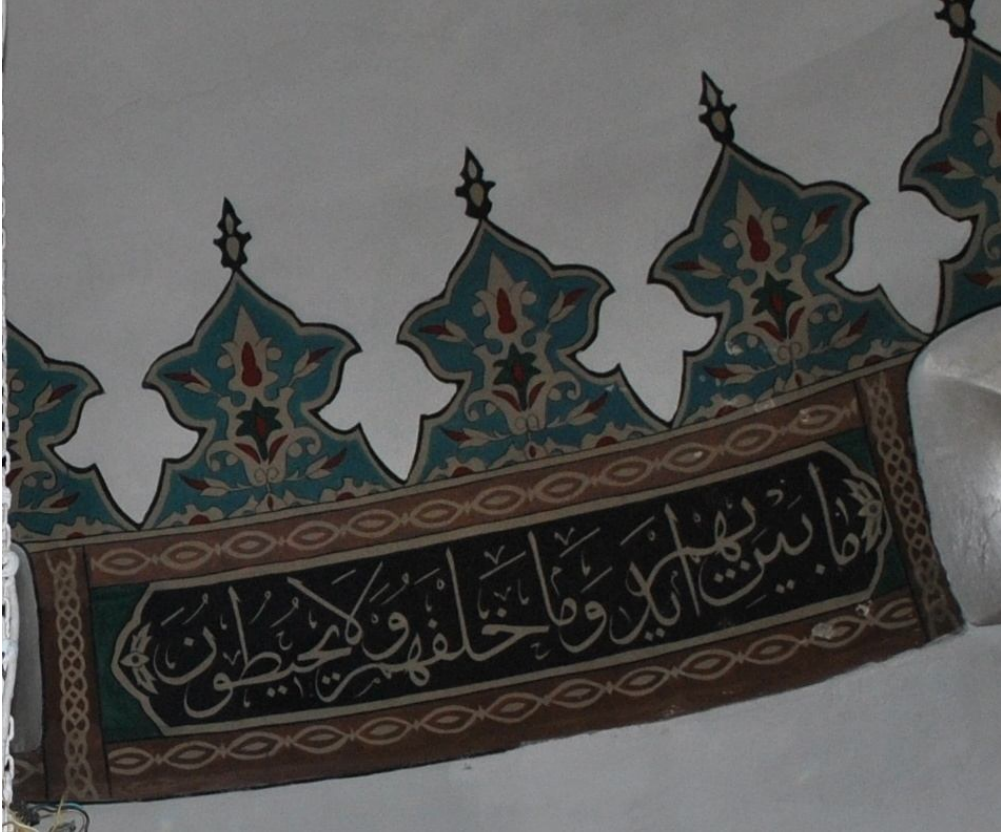 ما بين ايديهم وما خلفهم ولا يحيطون